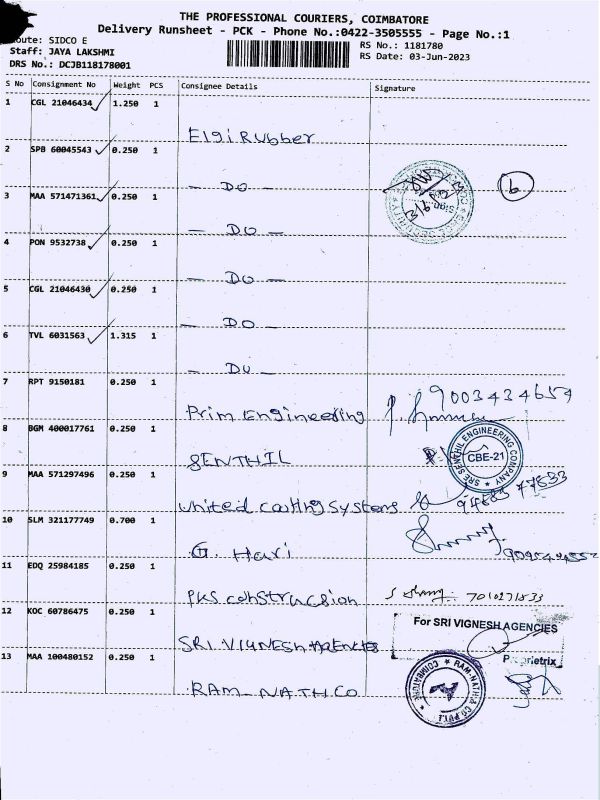 THE PROFESSIONAL COURIERS, COIMBATORE
Delivery Runsheet - PCK - Phone No.:0422-3505555 - Page No.:1
oute: SIDCO E
Staff: JAYA LAKSHMI
DRS No.: DCJB118178001
RS No.: 1181780
RS Date: 03-Jun-2023
S No Consignment No Weight PCS Consignee Details Signature
1 CGL 21046434 1.250 1
Elgi Rubber
2 SPB 60045543 0.250 1
— DO —
3 MAA 571471361 0.250 1
— DO —
4 PON 9532738 0.250 1
— DO —
5 CGL 21046430 0.250 1
— DO —
6 TVL 6031563 1.315 1
— DO —
6
7 RPT 9150181 0.250 1
Prim Engineering
9003434659
8 BGM 400017761 0.250 1
SENTHIL
SRE SENTHIL ENGINEERING COMPANY
CBE-21
9 MAA 571297496 0.250 1
United Casting Systems
10 SLM 321177749 0.700 1
G. Hari
11 EDQ 25984185 0.250 1
PKS construction
12 KOC 60786475 0.250 1
SRI VIGNESH AGENCIES
For SRI VIGNESH AGENCIES
Proprietrix
13 MAA 100480152 0.250 1
RAM-NATH CO
RAM-NATH & CO.PVT.L
COIMBATORE